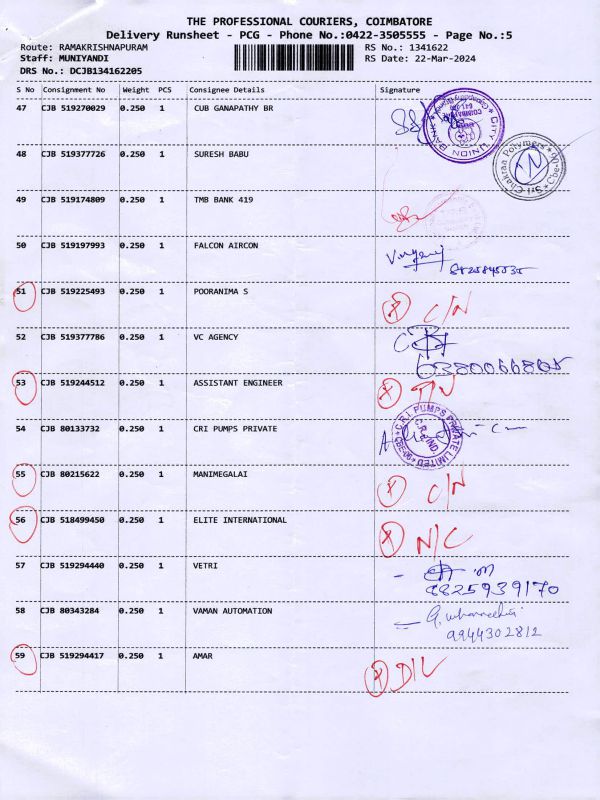 THE PROFESSIONAL COURIERS, COIMBATORE
Delivery Runsheet - PCG - Phone No.:0422-3505555 - Page No.:5
Route: RAMAKRISHNAPURAM RS No.: 1341622
Staff: MUNIYANDI RS Date: 22-Mar-2024
DRS No.: DCJB134162205
S No Consignment No Weight PCS Consignee Details Signature
47 CJB 519270029 0.250 1 CUB GANAPATHY BR
CITY UNION BANK
48 CJB 519377726 0.250 1 SURESH BABU
Sri Chakraa Polymers
49 CJB 519174809 0.250 1 TMB BANK 419
50 CJB 519197993 0.250 1 FALCON AIRCON
51 CJB 519225493 0.250 1 POORANIMA S
C/N
52 CJB 519377786 0.250 1 VC AGENCY
6380066805
53 CJB 519244512 0.250 1 ASSISTANT ENGINEER
54 CJB 80133732 0.250 1 CRI PUMPS PRIVATE
C.R.I. PUMPS PRIVATE LIMITED
55 CJB 80215622 0.250 1 MANIMEGALAI
C/N
56 CJB 518499450 0.250 1 ELITE INTERNATIONAL
N/C
57 CJB 519294440 0.250 1 VETRI
8825939170
58 CJB 80343284 0.250 1 VAMAN AUTOMATION
9944302812
59 CJB 519294417 0.250 1 AMAR
D/L